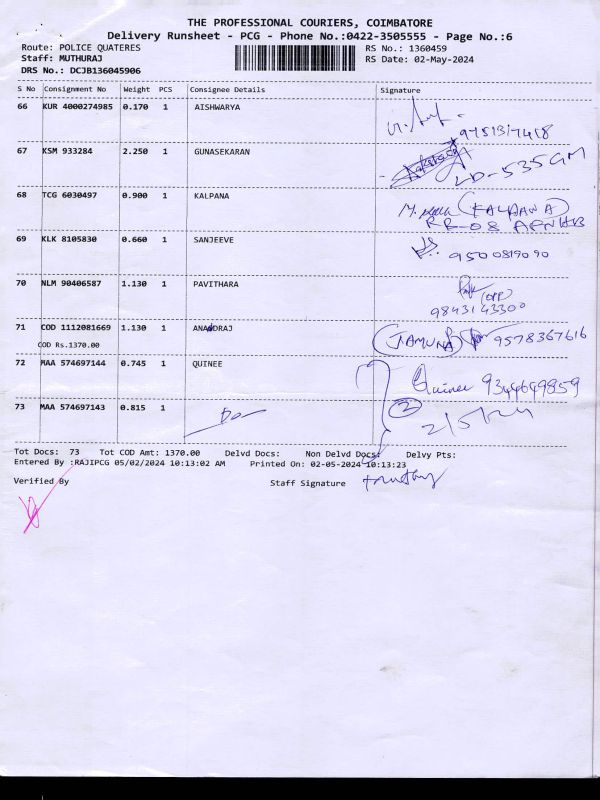 THE PROFESSIONAL COURIERS, COIMBATORE
Delivery Runsheet - PCG - Phone No.:0422-3505555 - Page No.:6
Route: POLICE QUATERES RS No.: 1360459
Staff: MUTHURAJ RS Date: 02-May-2024
DRS No.: DCJB136045906
S No Consignment No Weight PCS Consignee Details Signature
66 KUR 4000274985 0.170 1 AISHWARYA
9751317418
67 KSM 933284 2.250 1 GUNASEKARAN
LD-535GM
68 TCG 6030497 0.900 1 KALPANA
(KALPANA)
RB-08
69 KLK 8105830 0.660 1 SANJEEVE
9500819090
70 NLM 90406587 1.130 1 PAVITHARA
(OPP)
9843143300
71 COD 1112081669 1.130 1 ANANDRAJ (JAMUNA) 9578367616
COD Rs.1370.00
72 MAA 574697144 0.745 1 QUINEE Quinee 9344649859
73 MAA 574697143 0.815 1 Do 2
2/5/24
Tot Docs: 73 Tot COD Amt: 1370.00 Delvd Docs: Non Delvd Docs: Delvy Pts:
Entered By :RAJIPCG 05/02/2024 10:13:02 AM Printed On: 02-05-2024 10:13:23
Verified By Staff Signature